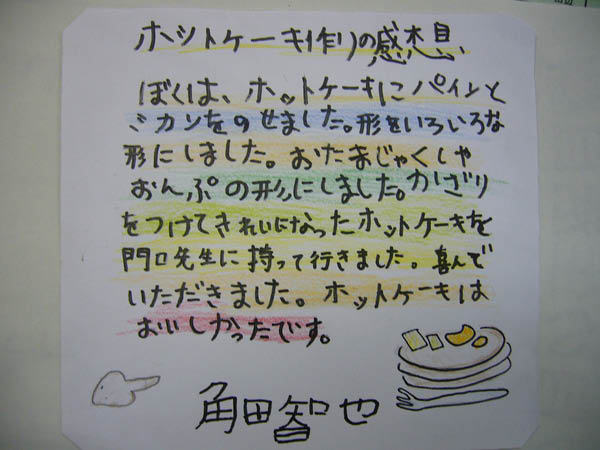 ホットケーキ作りの感想
ぼくは、ホットケーキにパインと
ミカンをのせました。形をいろいろな
形にしました。おたまじゃくしや
おんぷの形にしました。かざり
をつけてきれいになったホットケーキを
門口先生に持って行きました。喜んで
いただきました。ホットケーキは
おいしかったです。
角田智也